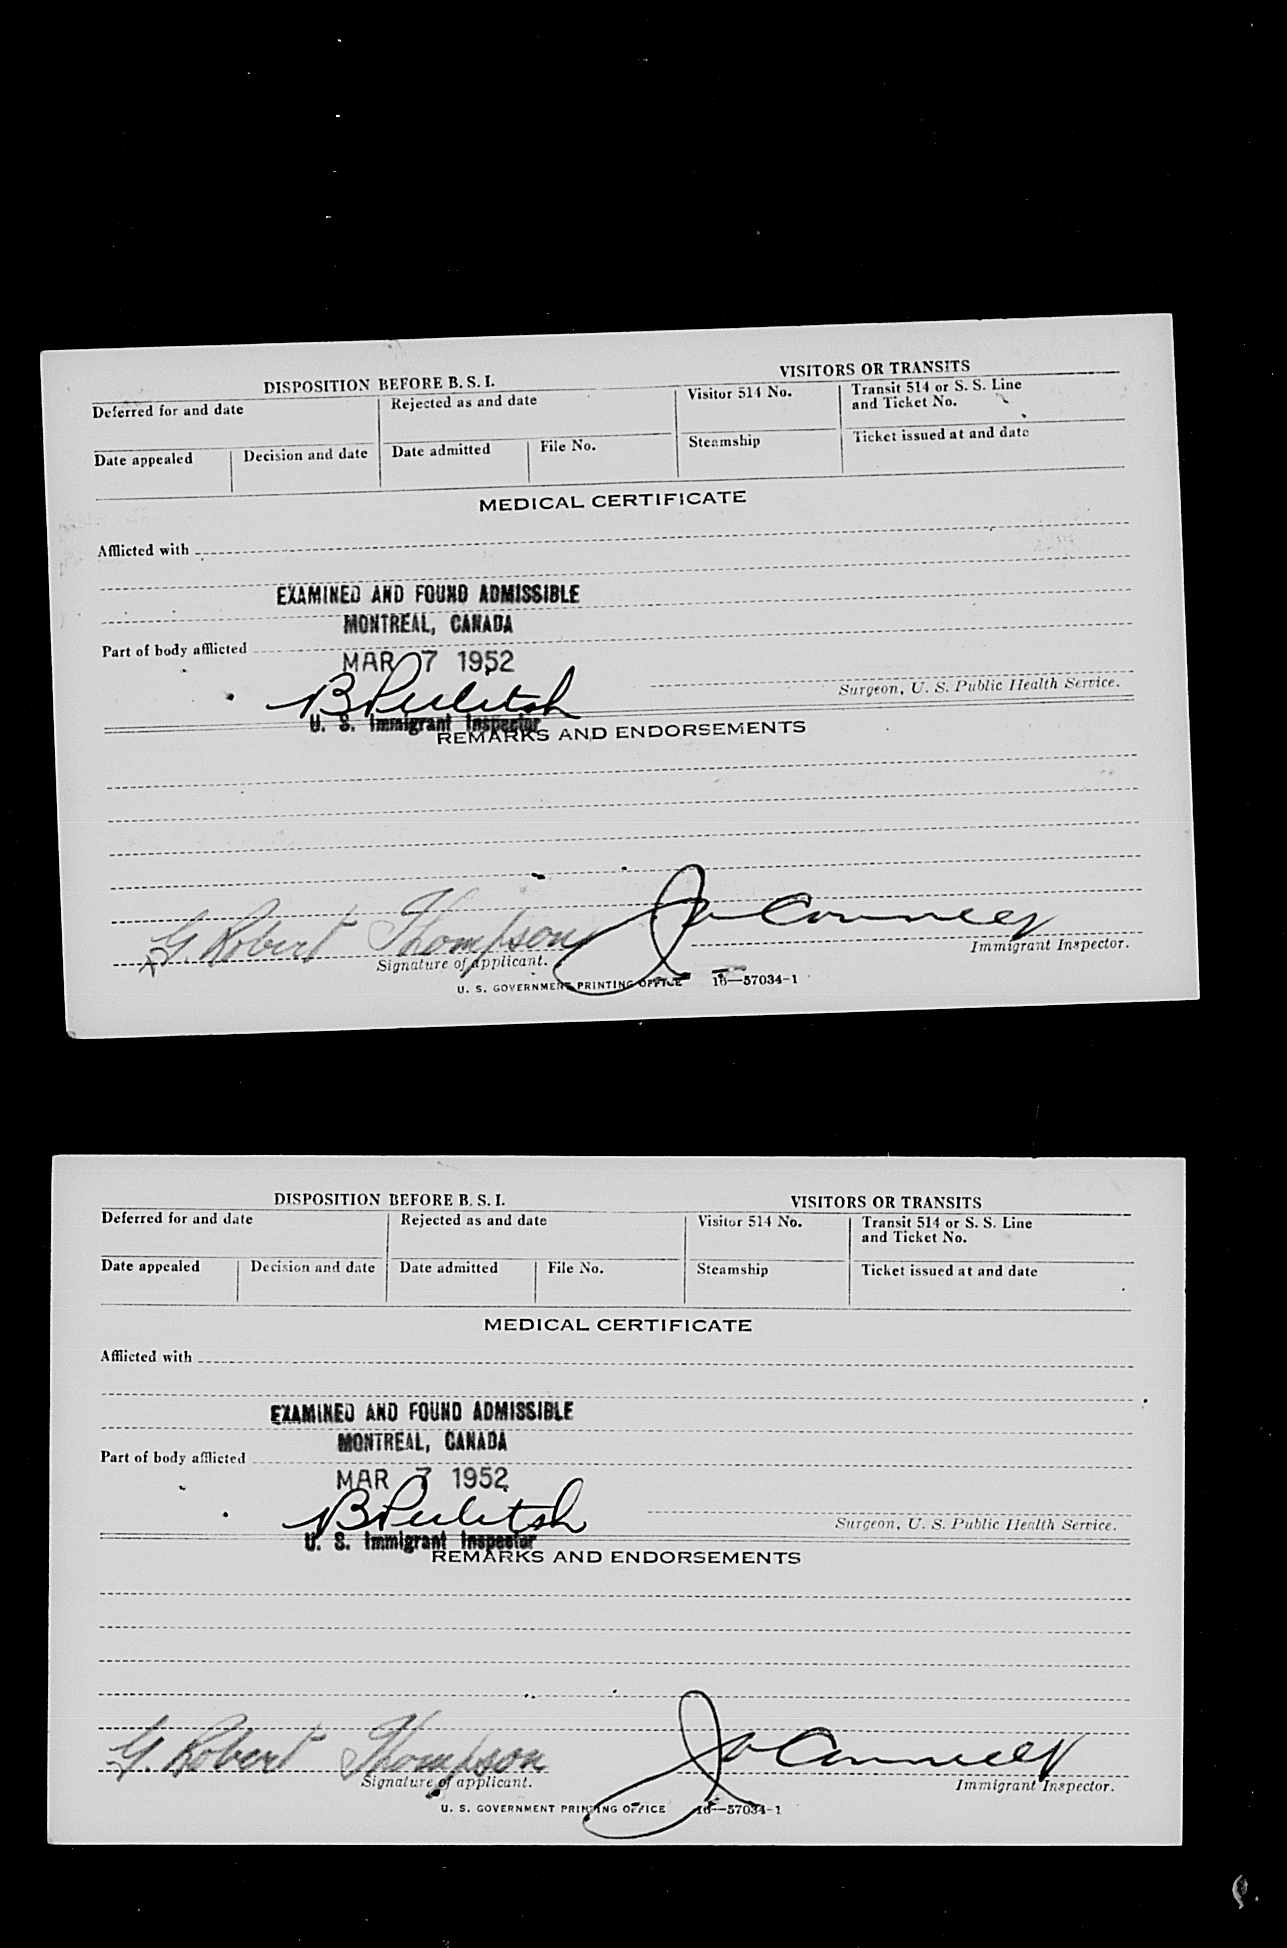 DISPOSITION BEFORE B. S. I.
VISITORS OR TRANSITS
Deferred for and date
Rejected as and date
Visitor 514 No.
Transit 514 or S. S. Line
and Ticket No.
Date appealed
Decision and date
Date admitted
File No.
Steamship
Ticket issued at and date
MEDICAL CERTIFICATE
Afflicted with
EXAMINED AND FOUND ADMISSIBLE
MONTREAL, CANADA
Part of body afflicted
MAR 7 1952
Surgeon, U. S. Public Health Service.
U. S. Immigrant Inspector
REMARKS AND ENDORSEMENTS
G. Robert Thompson
Signature of applicant.
Immigrant Inspector.
U. S. GOVERNMENT PRINTING OFFICE 16—57034-1
DISPOSITION BEFORE B. S. I.
VISITORS OR TRANSITS
Deferred for and date
Rejected as and date
Visitor 514 No.
Transit 514 or S. S. Line
and Ticket No.
Date appealed
Decision and date
Date admitted
File No.
Steamship
Ticket issued at and date
MEDICAL CERTIFICATE
Afflicted with
EXAMINED AND FOUND ADMISSIBLE
MONTREAL, CANADA
Part of body afflicted
MAR 7 1952
Surgeon, U. S. Public Health Service.
U. S. Immigrant Inspector
REMARKS AND ENDORSEMENTS
G. Robert Thompson
Signature of applicant.
Immigrant Inspector.
U. S. GOVERNMENT PRINTING OFFICE 16—57034-1